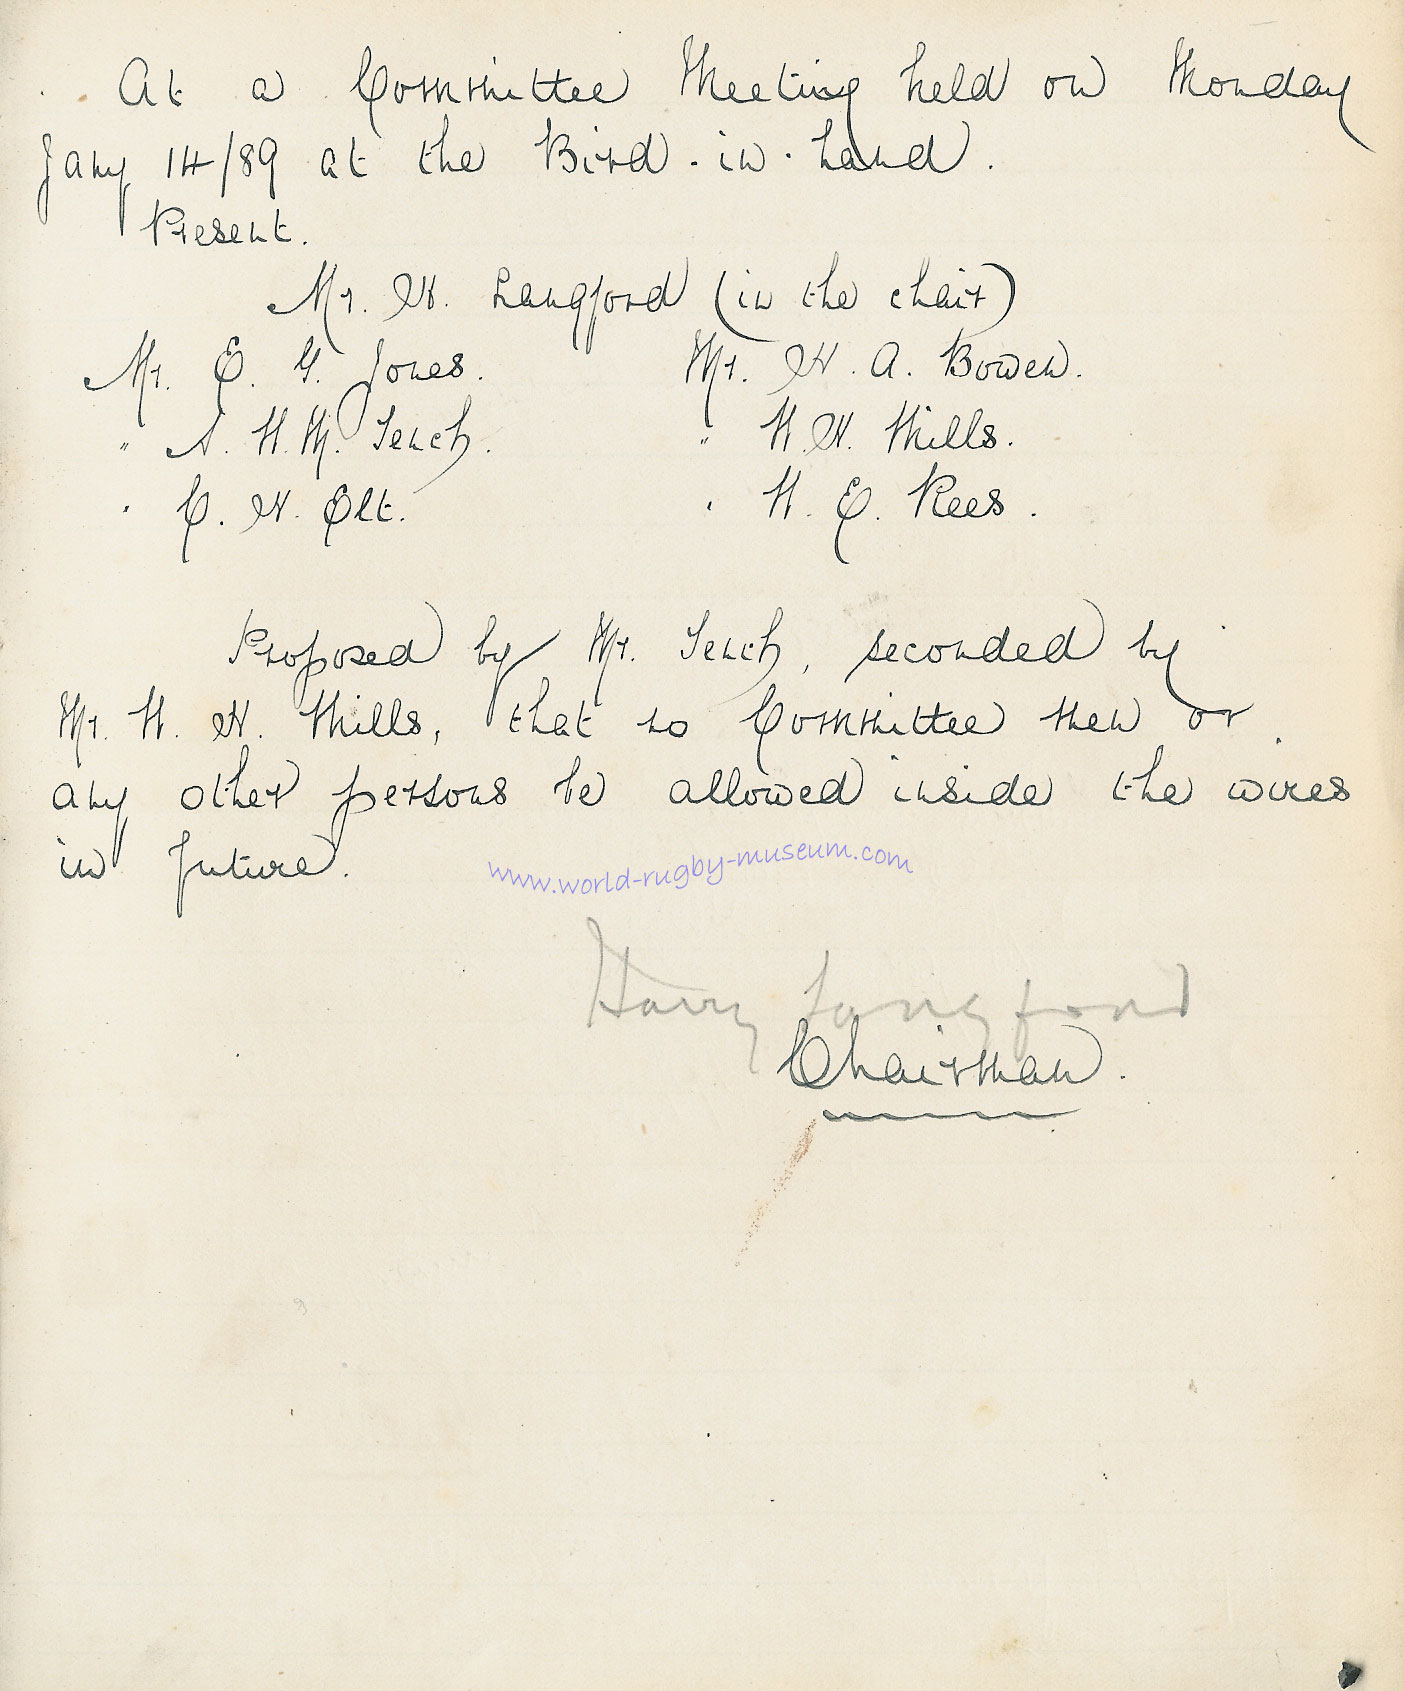 At a Committee Meeting held on Monday
Jany 14/89 at the Bird-in-hand.
Present.
Mr. H. Langford (in the chair)
Mr. E. G. Jones. Mr. H. A. Bowen.
" S. W. M. Tench. " W. H. Mills.
" C. H. Olt. " W. E. Rees.
Proposed by Mr. Tench, seconded by
Mr. W. H. Mills, that no Committee men or
any other persons be allowed inside the wires
in future.
www.world-rugby-museum.com
Harry Langford
Chairman.